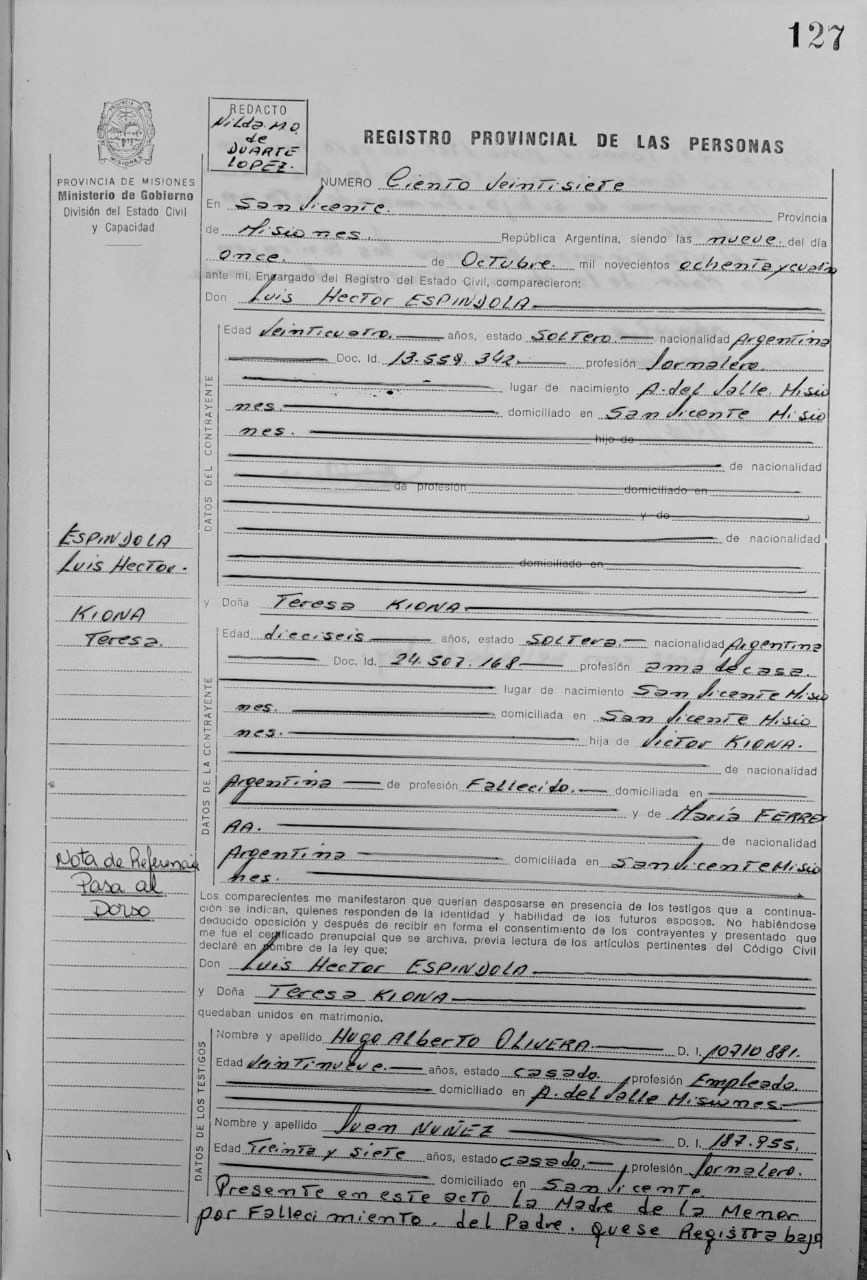 127
PROVINCIA DE MISIONES
REDACTO
Nilda M.O.
de
DUARTE
LOPEZ.
REGISTRO PROVINCIAL DE LAS PERSONAS
PROVINCIA DE MISIONES
Ministerio de Gobierno
División del Estado Civil
y Capacidad
NUMERO Ciento Veintisiete
En San Vicente. Provincia
de Misiones. República Argentina, siendo las nueve. del día
once. de Octubre. mil novecientos ochenta y cuatro
ante mi, Encargado del Registro del Estado Civil, comparecieron:
Don Luis Hector ESPINDOLA
DATOS DEL CONTRAYENTE
Edad Veinticuatro. años, estado SOLTERO. nacionalidad Argentina
Doc. Id. 13.559.342. profesión Jornalero.
lugar de nacimiento A. del Valle Misio
nes. domiciliado en San Vicente Misio
nes. hijo de
de nacionalidad
de profesión domiciliado en
y de
de nacionalidad
domiciliado en
ESPINDOLA
Luis Hector.
KIONA
Teresa.
y Doña Teresa KIONA
DATOS DE LA CONTRAYENTE
Edad dieciseis años, estado SOLTERA. nacionalidad Argentina
Doc. Id. 24.507.168 profesión ama de casa.
lugar de nacimiento San Vicente Misio
nes. domiciliada en San Vicente Misio
nes. hija de Victor KIONA.
de nacionalidad
Argentina de profesión Fallecido. domiciliada en
y de María FERREY
AA. de nacionalidad
Argentina domiciliada en San Vicente Misio
nes.
Nota de Referencia
Pasa al
Dorso
Los comparecientes me manifestaron que querían desposarse en presencia de los testigos que a continua-
ción se indican, quienes responden de la identidad y habilidad de los futuros esposos. No habiéndose
deducido oposición y después de recibir en forma el consentimiento de los contrayentes y presentado que
me fue el certificado prenupcial que se archiva, previa lectura de los artículos pertinentes del Código Civil
declaré en nombre de la ley que;
Don Luis Hector ESPINDOLA
y Doña Teresa KIONA
quedaban unidos en matrimonio.
DATOS DE LOS TESTIGOS
Nombre y apellido Hugo Alberto OLIVERA D. I. 10710881.
Edad Veintinueve. años, estado casado. profesión Empleado.
domiciliado en A. del Valle Misiones.
Nombre y apellido Juan NUÑEZ D. I. 187.955.
Edad Treinta y siete años, estado casado. profesión Jornalero.
domiciliado en San Vicente.
Presente en este acto La Madre de la Menor
por Fallecimiento. del Padre. que se Registra bajo